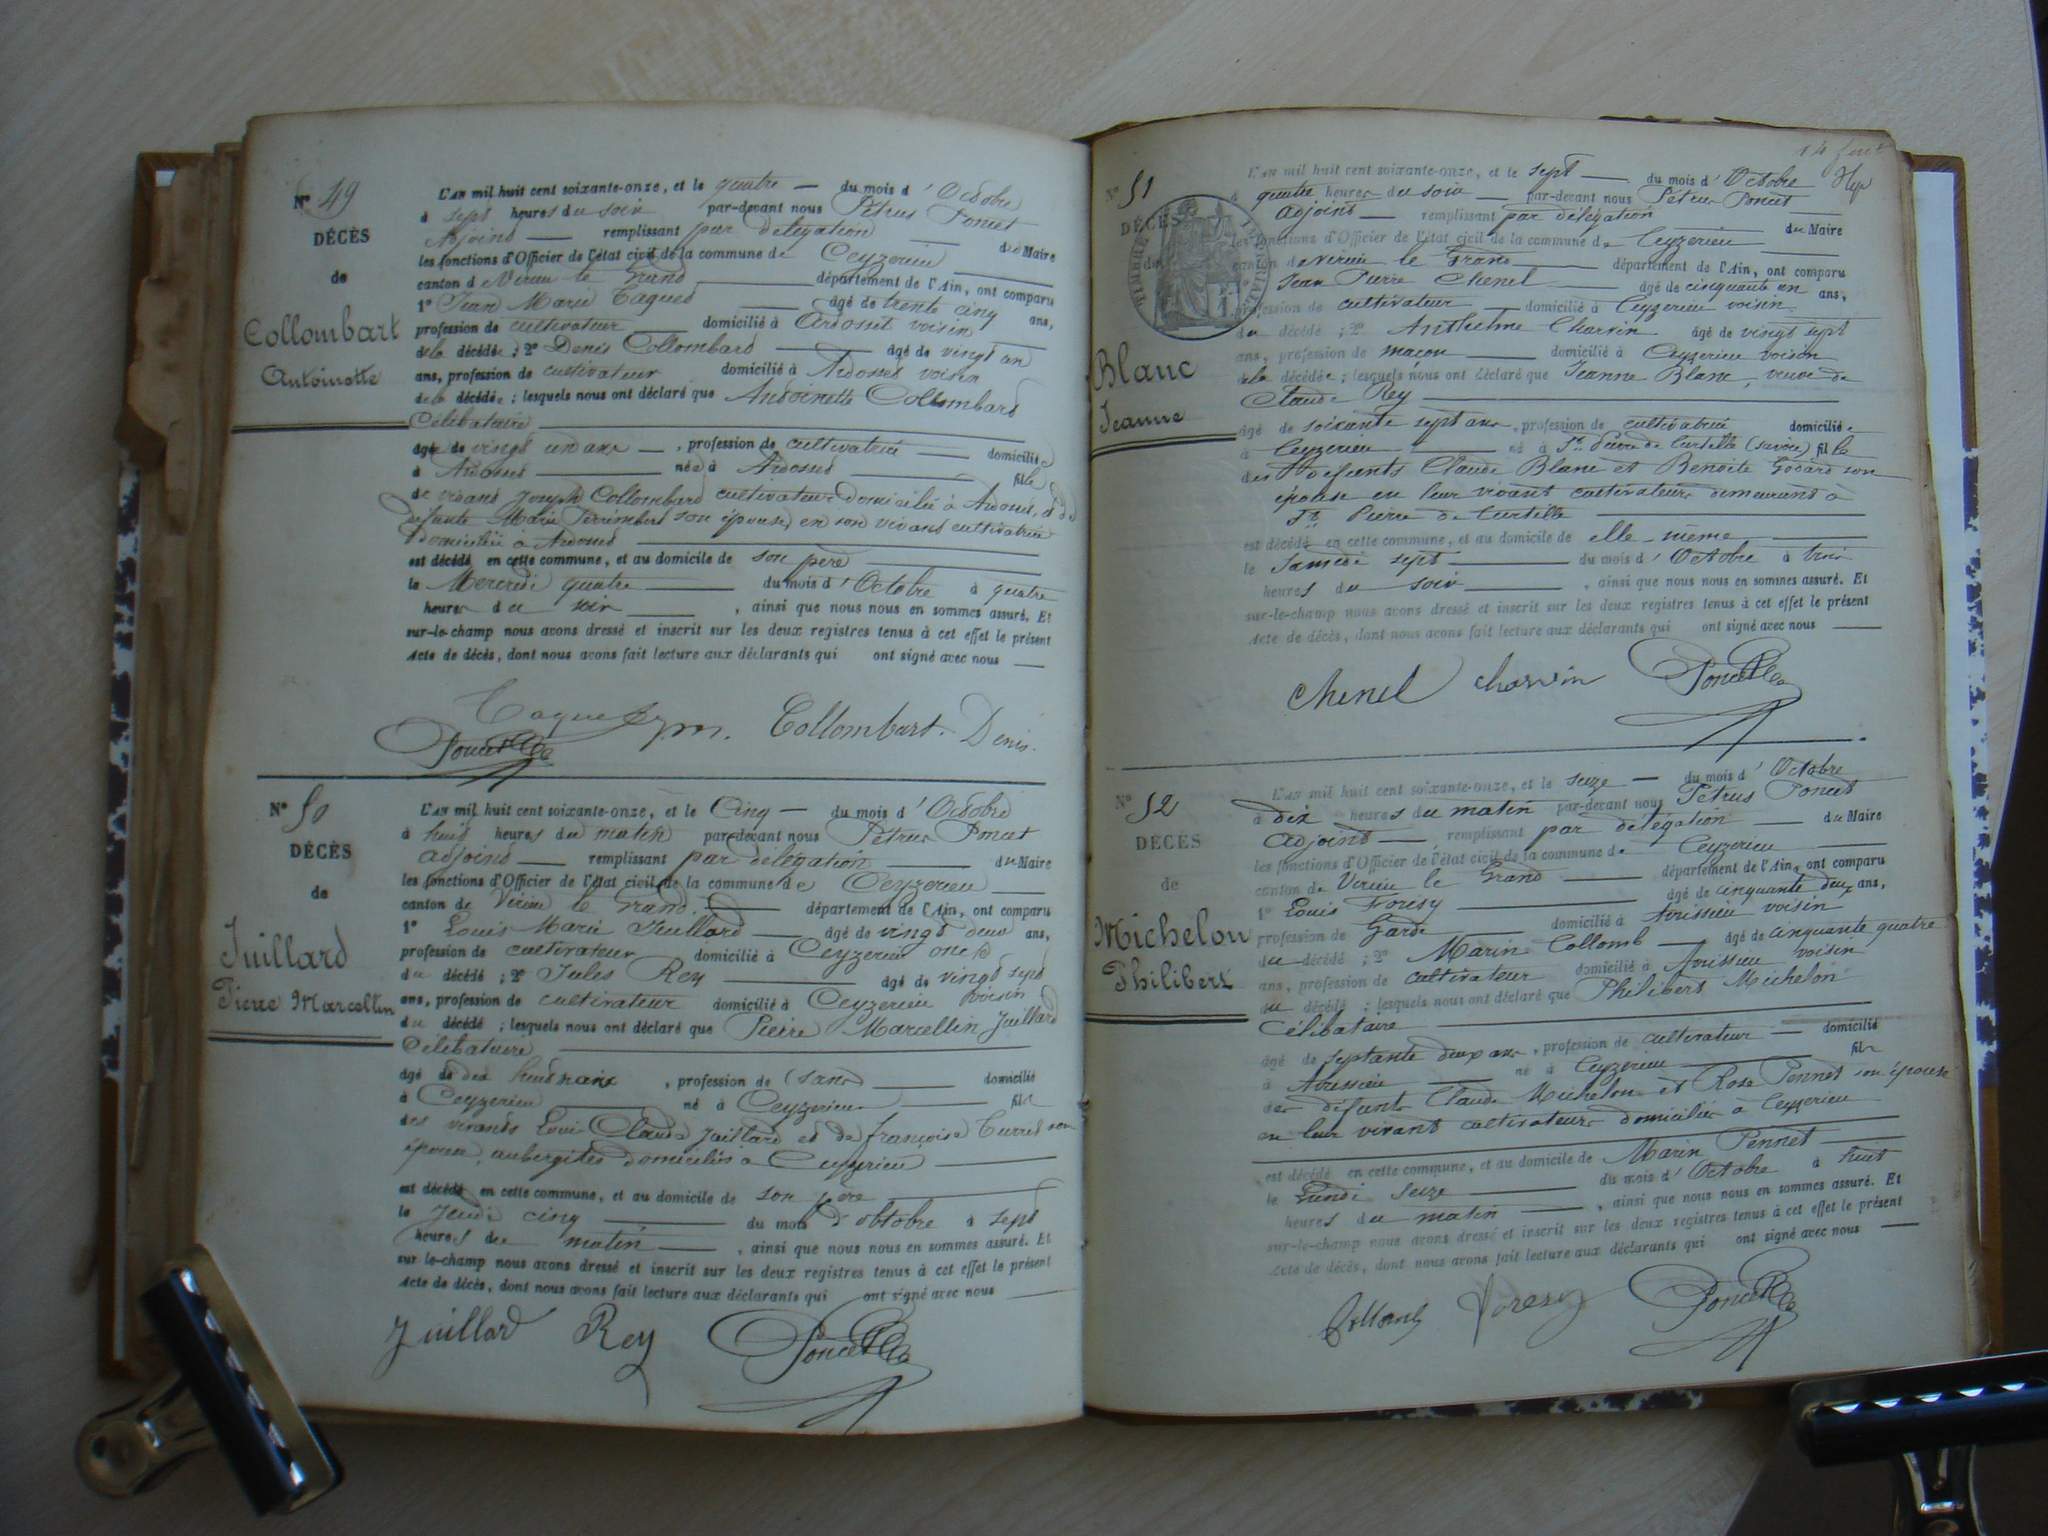 N° 49
DÉCÈS
de
Collombart
Antoinette
L'AN mil huit cent soixante-onze, et le quatre — du mois d'Octobre
à sept heures du soir par-devant nous Pétrus Poncet
Adjoint — remplissant par délégation — du Maire
les fonctions d'Officier de l'état civil de la commune de Ceyzerieu
canton de Virieu le Grand département de l'Ain, ont comparu
1° Jean Marie Caques — âgé de trente cinq ans,
profession de cultivateur domicilié à Ardosset voisin
de la décédée ; 2° Denis Collombard — âgé de vingt un
ans, profession de cultivateur domicilié à Ardosset voisin
de la décédée ; lesquels nous ont déclaré que Antoinette Collombard
Célibataire
âgé de vingt un ans —, profession de cultivatrice — domiciliée
à Ardosset — née à Ardosset — fille
de vivant Joseph Collombard cultivateur domicilié à Ardosset, et de
défunte Marie son épouse, en son vivant cultivatrice
domiciliée à Ardosset
est décédé en cette commune, et au domicile de son père
le Mercredi quatre — du mois d'Octobre à quatre
heures du soir —, ainsi que nous nous en sommes assuré. Et
sur-le-champ nous avons dressé et inscrit sur les deux registres tenus à cet effet le présent
Acte de décès, dont nous avons fait lecture aux déclarants qui ont signé avec nous —
Collombart. Denis.
Poncet
N° 50
DÉCÈS
de
Juillard
Pierre Marcellin
L'AN mil huit cent soixante-onze, et le Cinq — du mois d'Octobre
à huit heures du matin par-devant nous Pétrus Poncet
adjoint — remplissant par délégation — du Maire
les fonctions d'Officier de l'état civil de la commune de Ceyzerieu
canton de Virieu le Grand. — département de l'Ain, ont comparu
1° Louis Marie Juillard — âgé de vingt deux ans,
profession de cultivateur domicilié à Ceyzerieu oncle
du décédé ; 2° Jules Rey — âgé de vingt sept
ans, profession de cultivateur domicilié à Ceyzerieu voisin
du décédé ; lesquels nous ont déclaré que Pierre Marcellin Juillard
Célibataire
âgé de dix huit , profession de (sans — domicilié
à Ceyzerieu — né à Ceyzerieu — fils
des vivants Louis Claude Juillard et de françoise Curret son
épouse, aubergites domiciliés à Ceyzerieu
est décédé en cette commune, et au domicile de son père
le Jeudi cinq — du mois d'obtobre à sept
heures du matin —, ainsi que nous nous en sommes assuré. Et
sur le-champ nous avons dressé et inscrit sur les deux registres tenus à cet effet le présent
Acte de décès, dont nous avons fait lecture aux déclarants qui ont signé avec nous —
Juillard Rey Poncet
N° 51
DÉCÈS
de
Blanc
Jeanne
L'AN mil huit cent soixante-onze, et le sept — du mois d'Octobre
à quatre heures du soir — par-devant nous Pétrus Poncet
adjoint — remplissant par délégation — du Maire
les fonctions d'Officier de l'état civil de la commune de Ceyzerieu
canton de Virieu le Grand — département de l'Ain, ont comparu
Jean Pierre Chenel — âgé de cinquante un ans,
profession de cultivateur — domicilié à Ceyzerieu voisin
du décédé ; 2° Anthelme Charvin âgé de vingt sept
ans, profession de maçon — domicilié à Ceyzerieu voisin
de la décédée ; lesquels nous ont déclaré que Jeanne Blanc, veuve de
Claude Rey
âgé de soixante sept ans, profession de cultivatrice domiciliée
à Ceyzerieu — né à St. Pierre de Curtille (savoie) fille
des défunts Claude Blanc et Benoite Godard son
épouse en leur vivant cultivateurs demeurant à
St. Pierre de Curtille
est décédé en cette commune, et au domicile de elle-même
le Samedi sept — du mois d'Octobre à trois
heures du soir —, ainsi que nous nous en sommes assuré. Et
sur-le-champ nous avons dressé et inscrit sur les deux registres tenus à cet effet le présent
Acte de décès, dont nous avons fait lecture aux déclarants qui ont signé avec nous —
Chenel Charvin Poncet
N° 52
DÉCÈS
de
Michelon
Philibert
L'AN mil huit cent soixante-onze, et le seize — du mois d'Octobre
à dix heures du matin par-devant nous Pétrus Poncet
adjoint — remplissant par délégation — du Maire
les fonctions d'Officier de l'état civil de la commune de Ceyzerieu
canton de Virieu le Grand — département de l'Ain, ont comparu
1° Louis Voresy — âgé de cinquante deux ans,
profession de Garde domicilié à Avissieu voisin
du décédé ; 2° Marin Collomb — âgé de cinquante quatre
ans, profession de cultivateur domicilié à Avissieu voisin
du décédé ; lesquels nous ont déclaré que Philibert Michelon
Célibataire
âgé de septante deux ans, profession de cultivateur — domicilié
à Avissieu — né à Ceyzerieu — fils
des défunts Claude Michelon et Rose Pennet son épouse
en leur vivant cultivateurs domiciliés à Ceyzerieu
est décédé en cette commune, et au domicile de Marin Pennet
le Lundi seize — du mois d'Octobre à huit
heures du matin —, ainsi que nous nous en sommes assuré. Et
sur-le-champ nous avons dressé et inscrit sur les deux registres tenus à cet effet le présent
Acte de décès, dont nous avons fait lecture aux déclarants qui ont signé avec nous —
Collomb Voresy Poncet